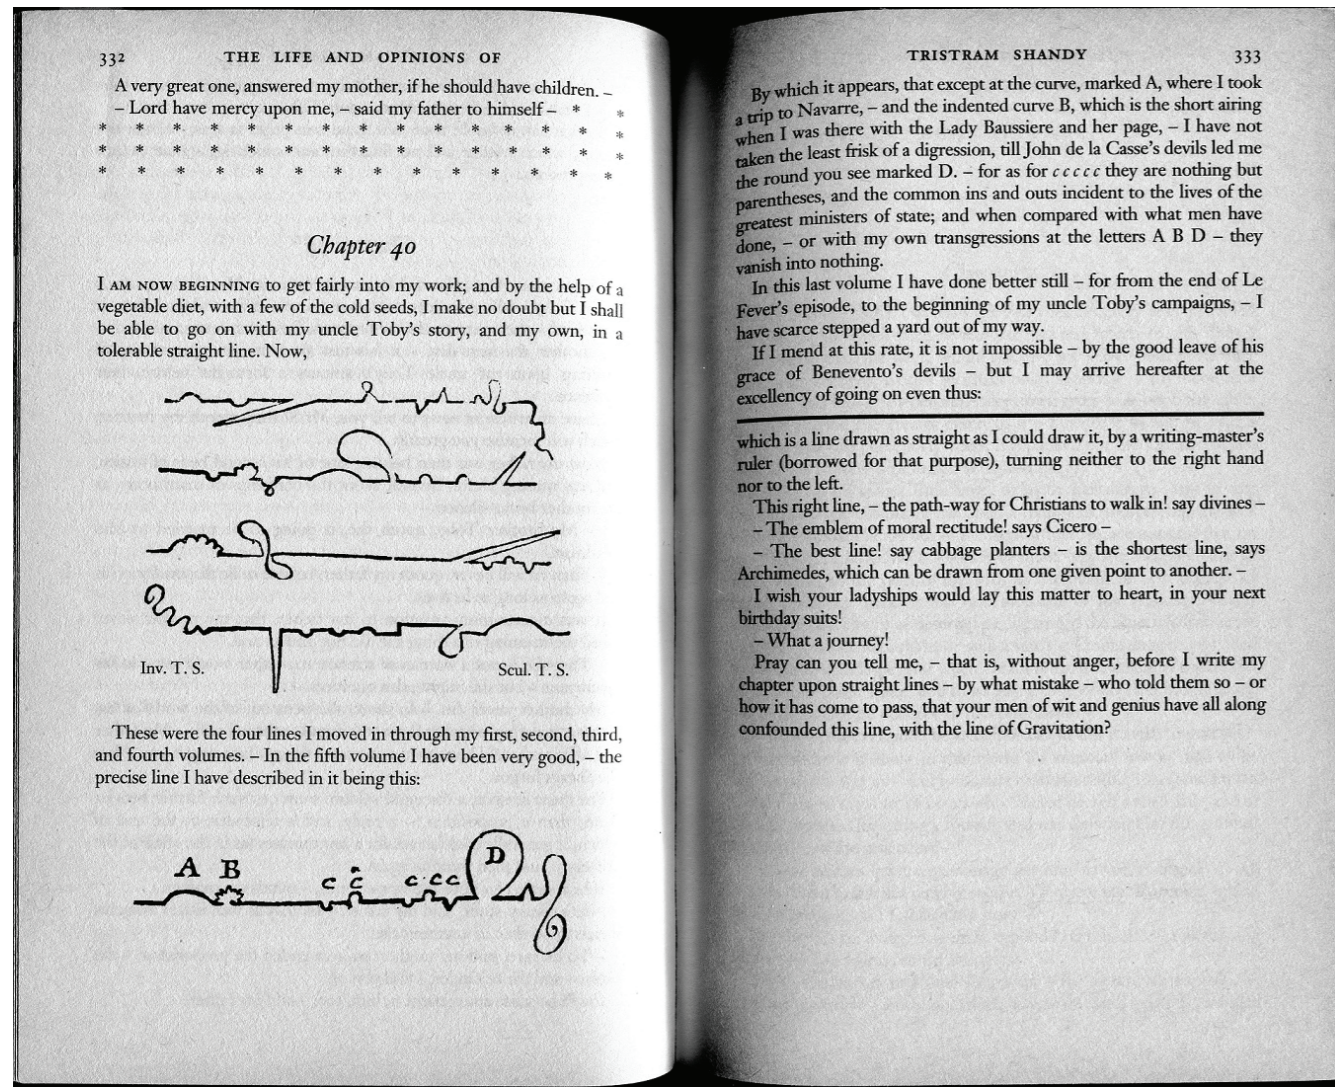 332 THE LIFE AND OPINIONS OF
A very great one, answered my mother, if he should have children. –
– Lord have mercy upon me, – said my father to himself – * *
* * * * * * * * * * * * * *
* * * * * * * * * * * * * *
* * * * * * * * * * * * * *
Chapter 40
I AM NOW BEGINNING to get fairly into my work; and by the help of a
vegetable diet, with a few of the cold seeds, I make no doubt but I shall
be able to go on with my uncle Toby's story, and my own, in a
tolerable straight line. Now,
Inv. T. S. Scul. T. S.
These were the four lines I moved in through my first, second, third,
and fourth volumes. – In the fifth volume I have been very good, – the
precise line I have described in it being this:
A B c c c c c D
TRISTRAM SHANDY 333
By which it appears, that except at the curve, marked A, where I took
a trip to Navarre, – and the indented curve B, which is the short airing
when I was there with the Lady Baussiere and her page, – I have not
taken the least frisk of a digression, till John de la Casse's devils led me
the round you see marked D. – for as for c c c c c they are nothing but
parentheses, and the common ins and outs incident to the lives of the
greatest ministers of state; and when compared with what men have
done, – or with my own transgressions at the letters A B D – they
vanish into nothing.
In this last volume I have done better still – for from the end of Le
Fever's episode, to the beginning of my uncle Toby's campaigns, – I
have scarce stepped a yard out of my way.
If I mend at this rate, it is not impossible – by the good leave of his
grace of Benevento's devils – but I may arrive hereafter at the
excellency of going on even thus:
which is a line drawn as straight as I could draw it, by a writing-master's
ruler (borrowed for that purpose), turning neither to the right hand
nor to the left.
This right line, – the path-way for Christians to walk in! say divines –
– The emblem of moral rectitude! says Cicero –
– The best line! say cabbage planters – is the shortest line, says
Archimedes, which can be drawn from one given point to another. –
I wish your ladyships would lay this matter to heart, in your next
birthday suits!
– What a journey!
Pray can you tell me, – that is, without anger, before I write my
chapter upon straight lines – by what mistake – who told them so – or
how it has come to pass, that your men of wit and genius have all along
confounded this line, with the line of Gravitation?